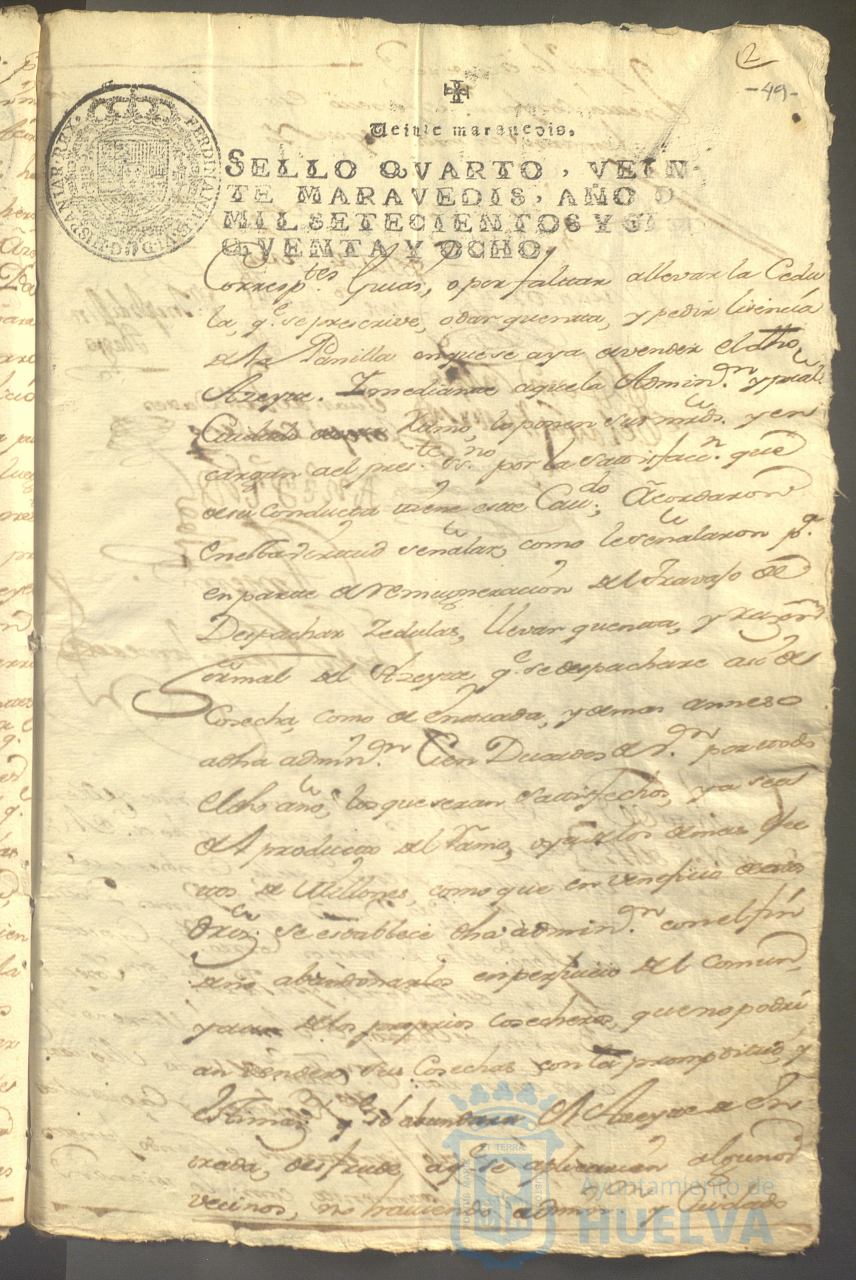 2
-49-
Veinte marauedis.
SELLO QVARTO, VEIN
TE MARAVEDIS, AÑO D
MIL SETECIENTOS Y CI
QVENTA Y OCHO.
FERDINANDVS VI D G HISPANIAR REX
Corresp.tes Guias, o por faltar a llevar la Cedu
la, q.e se prescrive, o dar quenta, y pedir lisencia
de la Panilla en que se aya de vender el dho
Azeyte. Y mediante a que la Admin.on y
Cuidado de este Ramo, lo ponen sus mrds. y en
cargan a el pres.te es.no por la satisfacc.n que
de su conducta tiene este Cau.do, Acordaron
señalar, como le señalaron p.r
en parte de remuneracion del travajo de
Despachar Zedulas, llevar quenta, y razon
formal del Azeyte q.e se despachare asi de
Cosecha, como de entrada, y demas annexo
a dha admin.on Cien Ducados de v.on por todo
el dho año, los que seran satisfechos, ya sea
del producto del Ramo, o ya de los demas efec
tos de Millones, como que en veneficio de estos
se establece dha admin.on con el fin
de no abandonarlos en perjuicio del Comun,
y aun de los proprios cosecheros, que no podri
an vender sus Cosechas con la promptitud, y
estimaz.on y solo abundara el Azeyte de En
trada, de fraude, a q.e se aplicarian algunos
vecinos, no haviendo admin.on y Cuidado
Ayuntamiento de
HUELVA